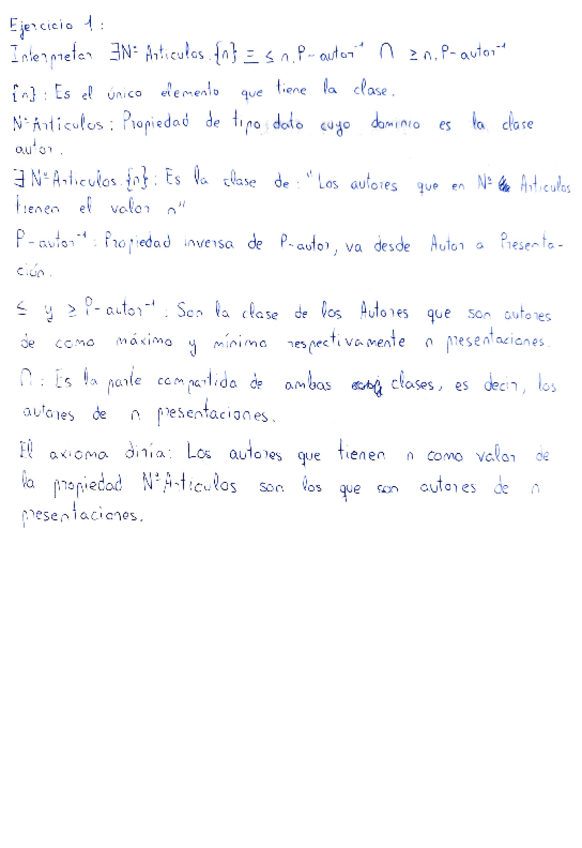 Ejercicio 1:
Interpretar ∃Nº Artículos.{n} ≡ ≤ n. P-autor⁻¹ ∩ ≥ n. P-autor⁻¹
{n}: Es el único elemento que tiene la clase.
Nº Artículos: Propiedad de tipo dato cuyo dominio es la clase
autor.
∃ Nº Artículos.{n}: Es la clase de: "Los autores que en Nº Artículos
tienen el valor n"
P-autor⁻¹: Propiedad inversa de P-autor, va desde Autor a Presenta-
ción.
≤ y ≥ P-autor⁻¹: Son la clase de los Autores que son autores
de como máximo y mínimo respectivamente n presentaciones.
∩: Es la parte compartida de ambas clases, es decir, los
autores de n presentaciones.
El axioma diría: Los autores que tienen n como valor de
la propiedad Nº Artículos son los que son autores de n
presentaciones.